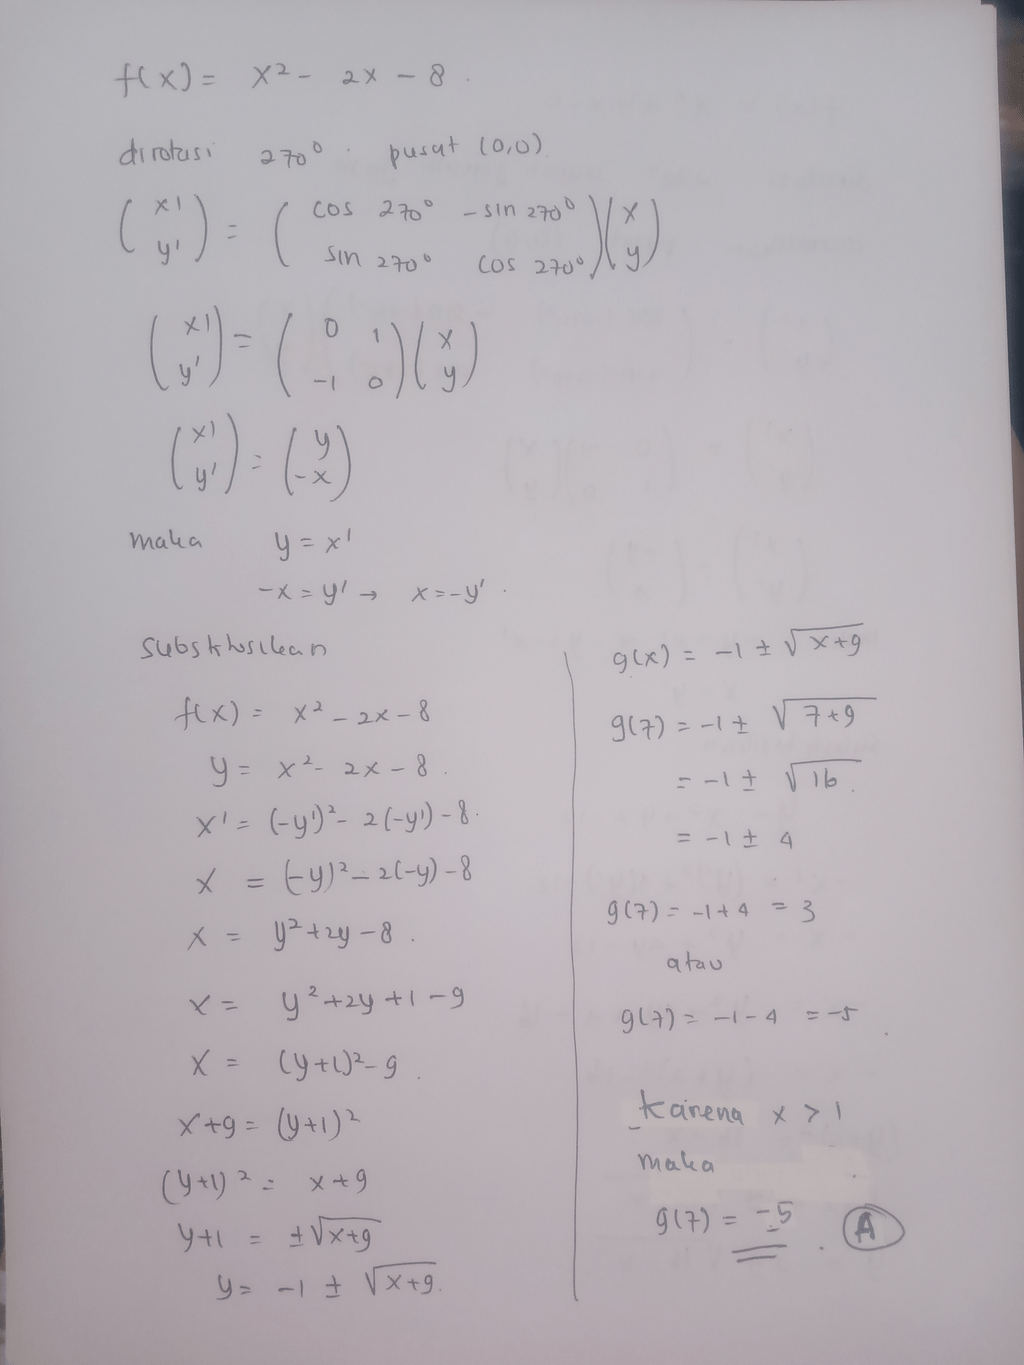 f(x) = x² - 2x - 8.
dirotasi 270°. pusat (0,0)
(x' y') = (cos 270° -sin 270° sin 270° cos 270°)(x y)
(x' y') = (0 1 -1 0)(x y)
(x' y') = (y -x)
maka y = x'
-x = y' → x = -y'.
Substitusikan
f(x) = x² - 2x - 8
y = x² - 2x - 8.
x' = (-y')² - 2(-y') - 8.
x = (-y)² - 2(-y) - 8
x = y² + 2y - 8.
x = y² + 2y + 1 - 9
x = (y+1)² - 9.
x+9 = (y+1)²
(y+1)² = x+9
y+1 = ±√x+9
y = -1 ± √x+9.
g(x) = -1 ± √x+9
g(7) = -1 ± √7+9
= -1 ± √16.
= -1 ± 4
g(7) = -1+4 = 3
atau
g(7) = -1-4 = -5.
Karena x > 1
maka
g(7) = -5. A